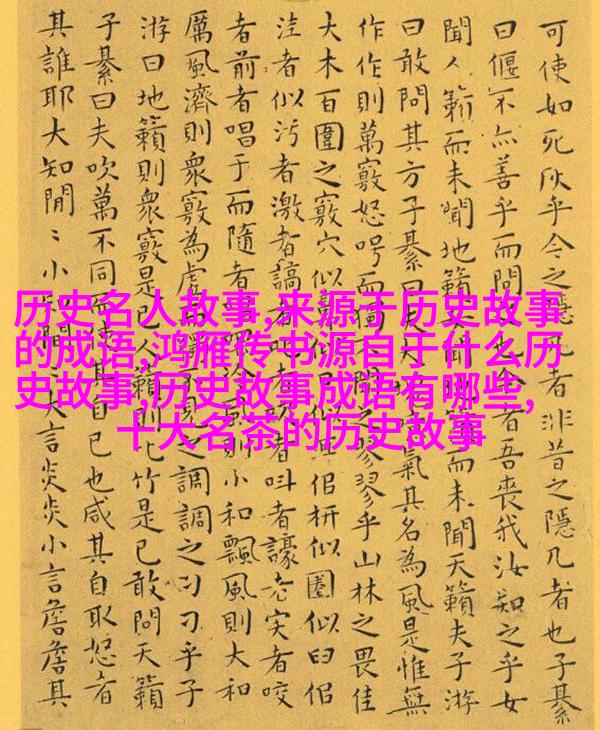 历史名人故事,来源于历史故事
的成语,鸿雁传书源自于什么历
史故事,历史故事成语有哪些,
十大名茶的历史故事
可使如死灰乎今之隱几者非昔之隱几者也子綦
曰偃不亦善乎而問者吾喪我汝知之乎女
聞人籟而未聞地籟聞籟而未聞天籟夫子游
曰敢問其方子綦曰夫大氣其名為風是惟無
作作則萬竅怒呺而獨聞之翏翏乎山林之畏佳
大木百圍之竅穴似鼻佀枅似圈似臼佀
洼者似污者激者謞者者叫者譹者宎者咬
者前者唱于而隨者風則小和飄風則大和
厲風濟則衆竅為虛而獨不見之調調之刁刁乎子
游曰地籟則衆竅是已人籟則比竹是已敢問天籟
子綦曰夫吹萬不同而使其自已也咸其自取怒者
其誰耶大知閒〻小知閒〻大言炎炎小言詹詹其